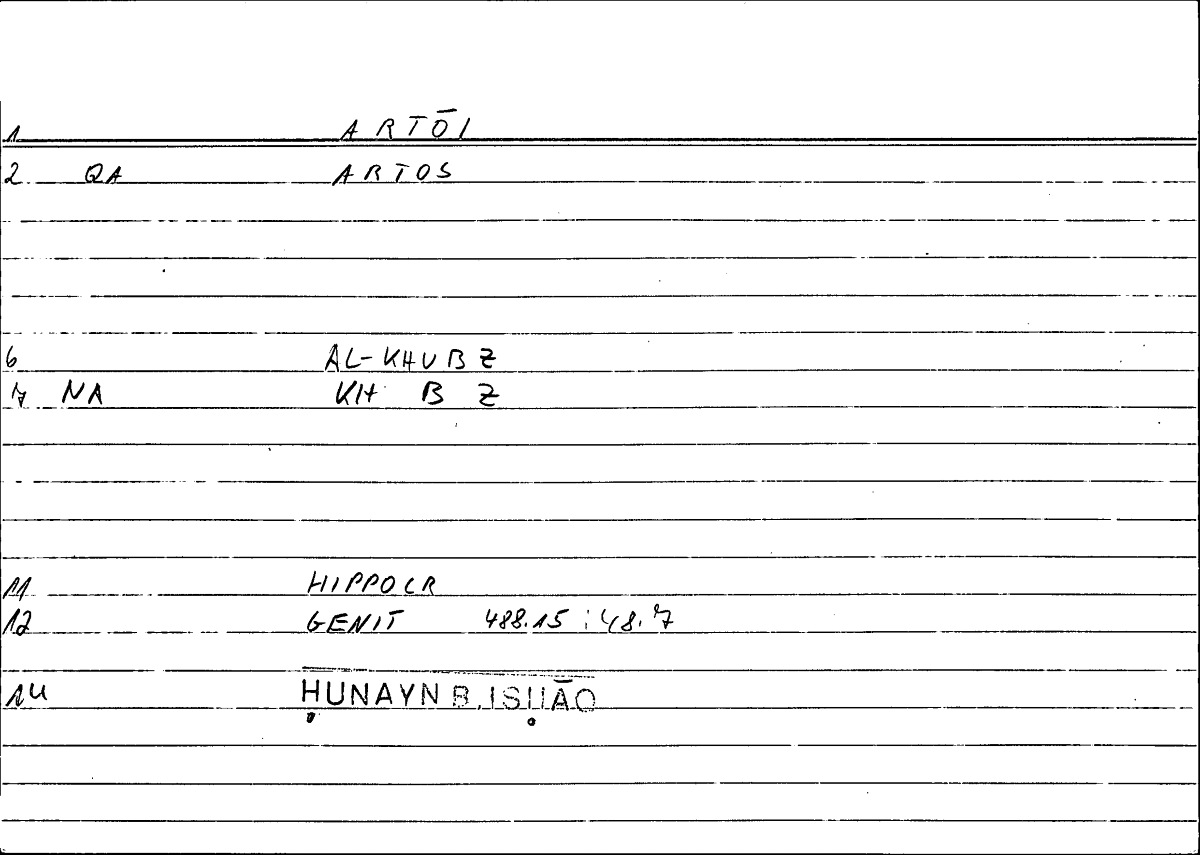 1 ARTŌI
2. QA ARTOS
6 AL-KHUBZ
7 NA KH B Z
11 HIPPOCR
12 GENIT 488.15 : 48.7
14 ḤUNAYN B. ISḤĀQ